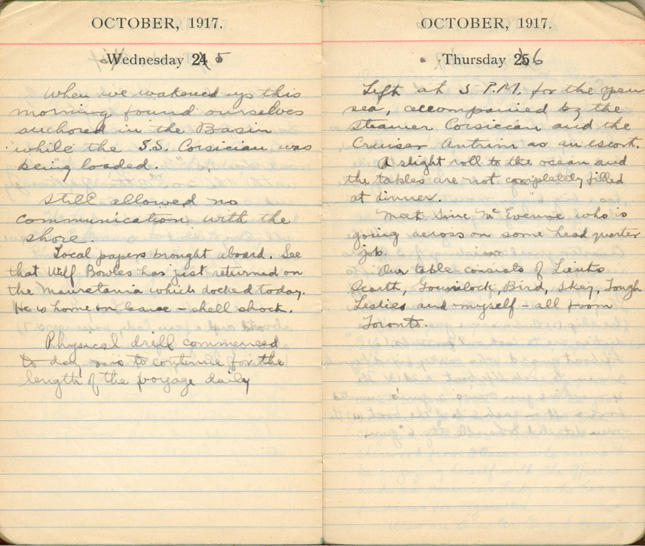 OCTOBER, 1917.
Wednesday 24 5
When we wakened up this
morning found ourselves
anchored in the Basin
while the S.S. Corsician was
being loaded.
Still allowed no
communication with the
shore.
Local papers brought aboard. See
that Wilf Bowles has just returned on
the Mauretania which docked today.
He is home on leave - shell shock.
Physical drill commenced
to day, is to continue for the
length of the voyage daily
OCTOBER, 1917.
Thursday 25 6
Left at 5 P.M. for the open
sea, accompanied by the
steamer Corsician and the
Cruiser Antrim as an escort.
A slight roll to the ocean and
the tables are not completely filled
at dinner.
Meet who is
going across on some head quarter
job.
Our table consists of Lieuts
Bird, Skey, Tough
Leslies and myself - all from
Toronto.